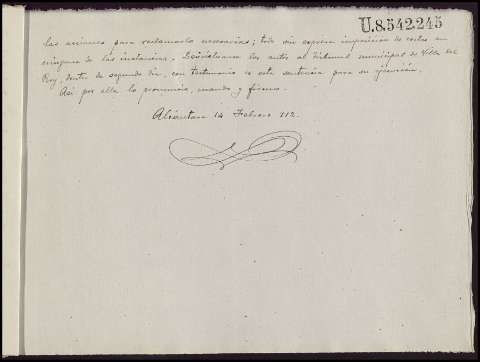 U.8.542.245
las acciones para reclamarlo necesarias; todo sin expresa imposición de costas en
ninguna de las instancias. Devuélvanse los autos al tribunal municipal de Villa del
Rey, dentro de segundo día, con testimonio de esta sentencia para su ejecución.
Así por ella lo pronuncio, mando y firmo.
Alcántara 14 Febrero 912.